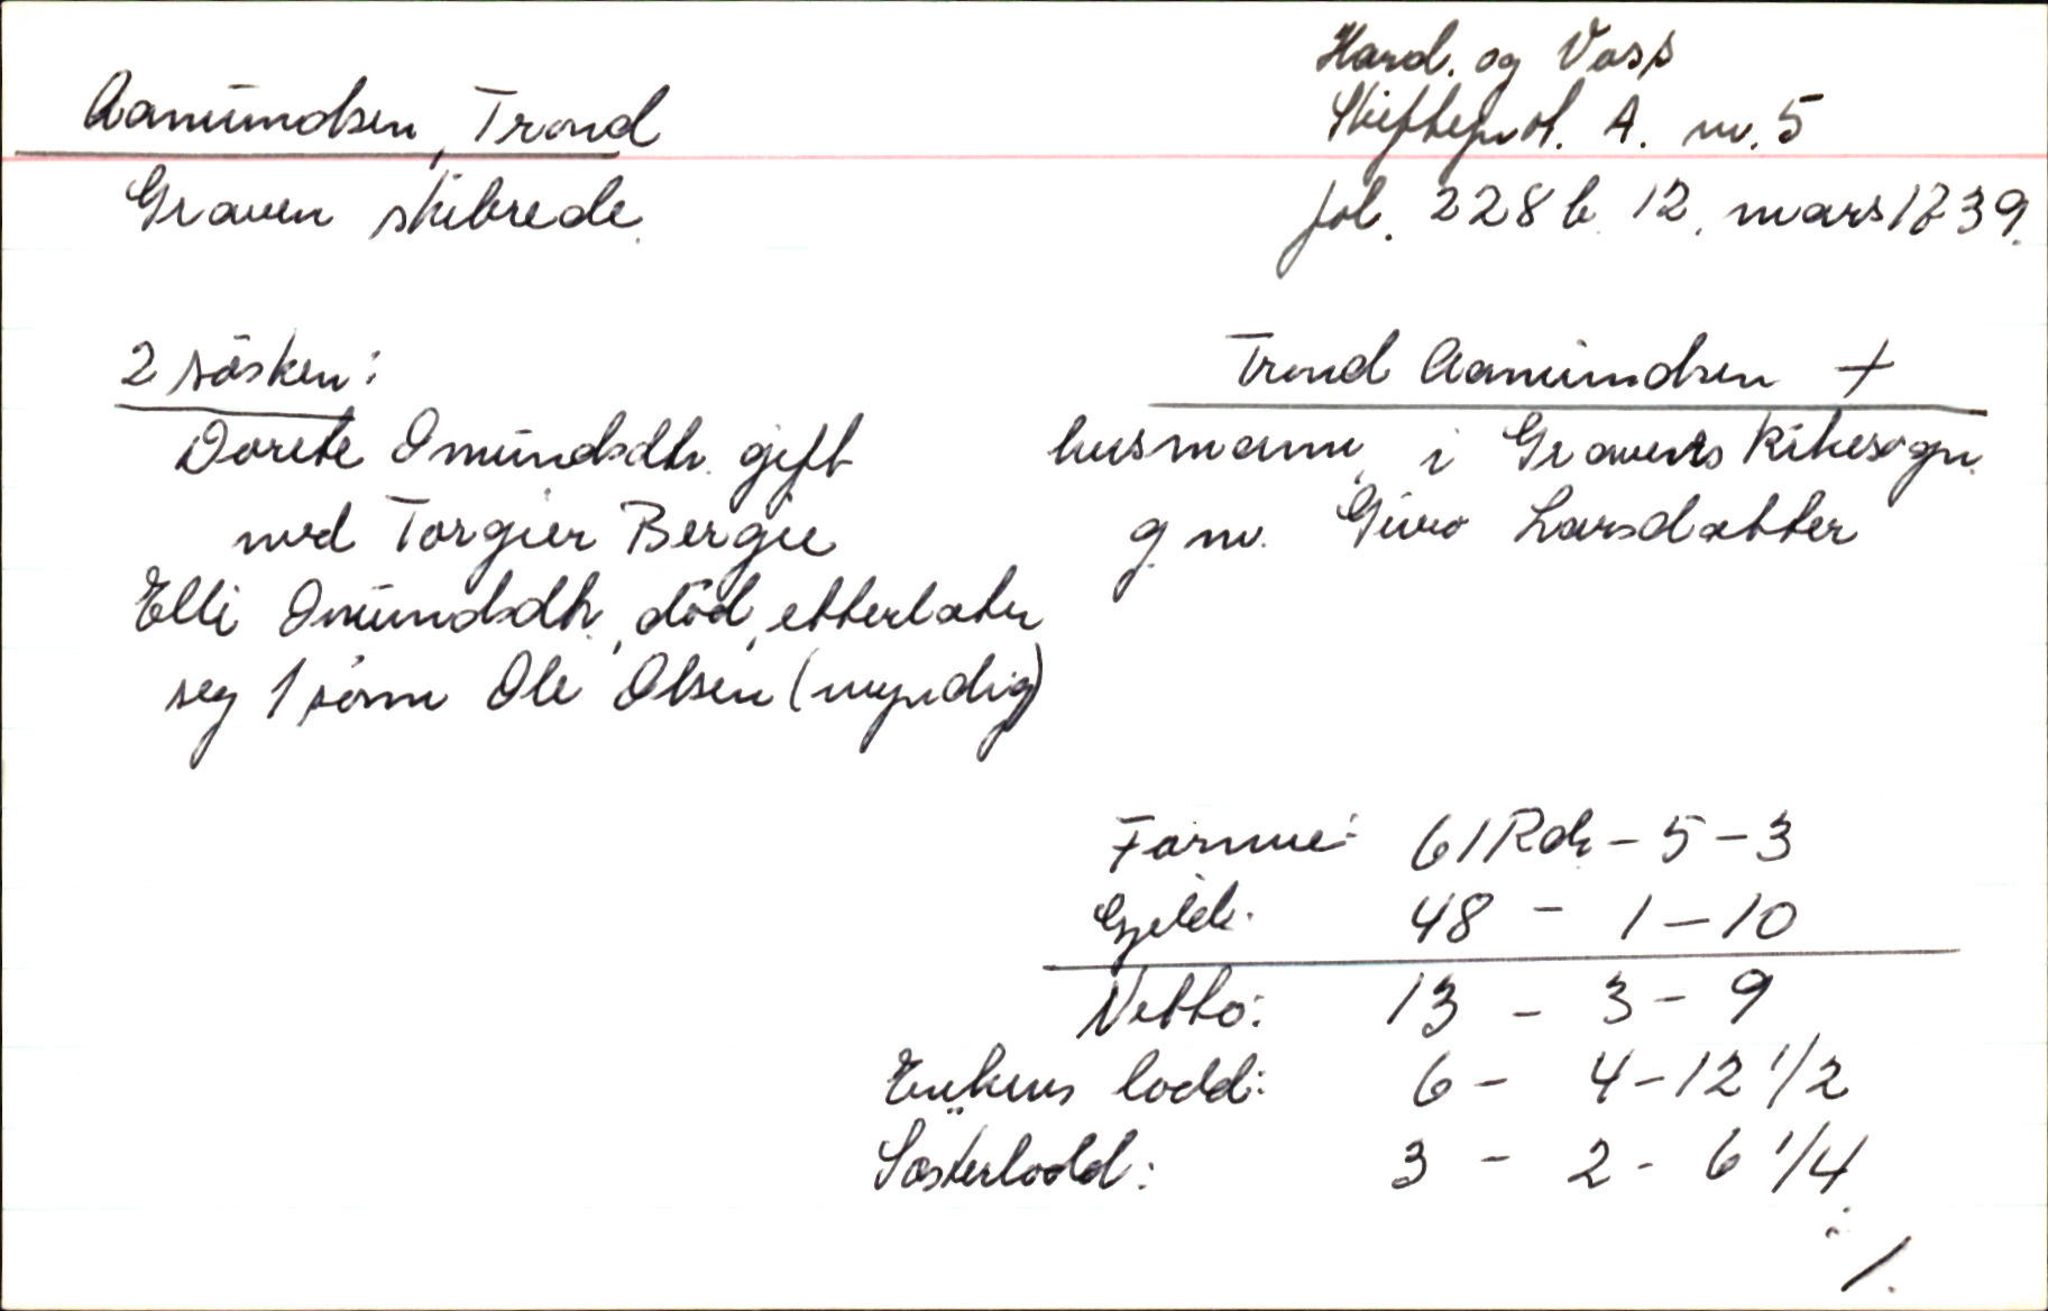 Aamundsen, Trond
Graven skibrede
Hard. og Voss
Skifteprot. A. nr. 5
fol. 228 b 12. mars 1739.
2 søsken:
Dorete Omundsdtr. gift
med Torgier Bergie
Elli Omundsdtr., död, etterlater
seg 1 sönn Ole Olsen (myndig)
Trond Aamundsen +
husmann i Gravens kikesogn
g. m. Giuro Larsdatter
Formue: 61 Rdr - 5 - 3
Gjeld: 48 - 1 - 10
Netto: 13 - 3 - 9
Enkens lodd: 6 - 4 - 12 1/2
Sösterlodd: 3 - 2 - 6 1/4
./.